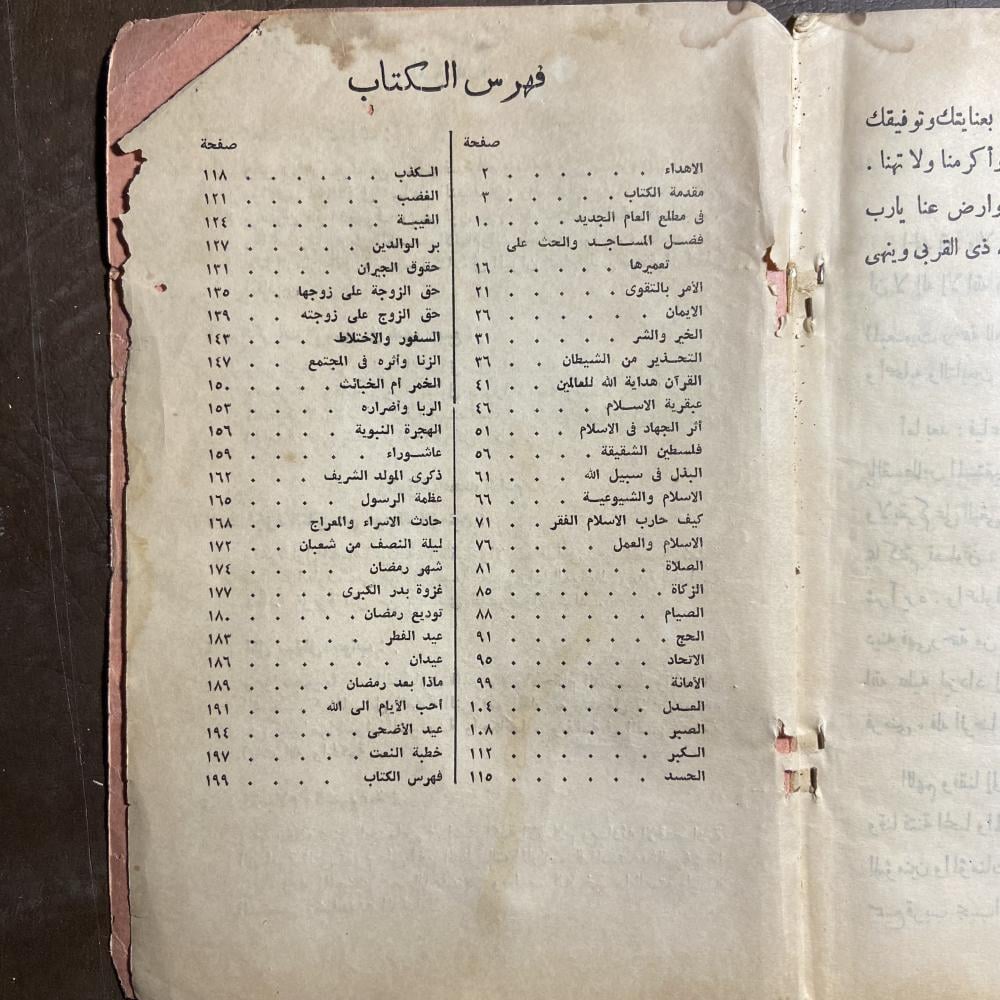 فهرس الكتاب
صفحة
الاهداء . . . . . . ٢
مقدمة الكتاب . . . . ٣
فى مطلع العام الجديد . . . ١٠
فضل المساجد والحث على
تعميرها . . . . . ١٦
الأمر بالتقوى . . . . ٢١
الايمان . . . . . . ٢٦
الخير والشر . . . . . ٣١
التحذير من الشيطان . . . ٣٦
القرآن هداية الله للعالمين . . ٤١
عبقرية الاسلام . . . . ٤٦
أثر الجهاد فى الاسلام . . . ٥١
فلسطين الشقيقة . . . . ٥٦
البذل فى سبيل الله . . . ٦١
الاسلام والشيوعية . . . . ٦٦
كيف حارب الاسلام الفقر . . ٧١
الاسلام والعمل . . . . ٧٦
الصلاة . . . . . . ٨١
الزكاة . . . . . . ٨٥
الصيام . . . . . . ٨٨
الحج . . . . . . . ٩١
الاتحاد . . . . . . ٩٥
الأمانة . . . . . . ٩٩
العدل . . . . . . ١٠٤
الصبر . . . . . . ١٠٨
الكبر . . . . . . ١١٢
الحسد . . . . . . ١١٥
صفحة
الكذب . . . . . . ١١٨
الغضب . . . . . . ١٢١
الغيبة . . . . . . ١٢٤
بر الوالدين . . . . . ١٢٧
حقوق الجيران . . . . ١٣١
حق الزوجة على زوجها . . . ١٣٥
حق الزوج على زوجته . . . ١٣٩
السفور والاختلاط . . . . ١٤٣
الزنا وأثره فى المجتمع . . . ١٤٧
الخمر أم الخبائث . . . . ١٥٠
الربا وأضراره . . . . . ١٥٣
الهجرة النبوية . . . . . ١٥٦
عاشوراء . . . . . ١٥٩
ذكرى المولد الشريف . . . ١٦٢
عظمة الرسول . . . . ١٦٥
حادث الاسراء والمعراج . . . ١٦٨
ليلة النصف من شعبان . . ١٧٢
شهر رمضان . . . . . ١٧٤
غزوة بدر الكبرى . . . . ١٧٧
توديع رمضان . . . . . ١٨٠
عيد الفطر . . . . . ١٨٣
عيدان . . . . . . ١٨٦
ماذا بعد رمضان . . . . ١٨٩
أحب الأيام الى الله . . . ١٩١
عيد الأضحى . . . . . ١٩٤
خطبة النعت . . . . . ١٩٧
فهرس الكتاب . . . . ١٩٩
بعنايتك وتوفيقك
وأكرمنا ولا تهنا .
وارض عنا يارب
ذى القربى وينهى